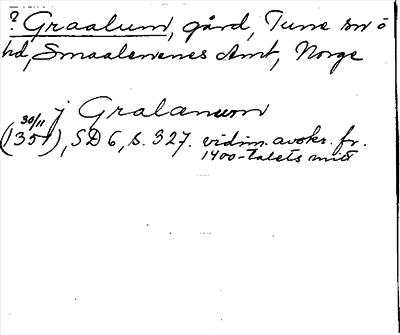 ? Graalum, gård, Tune sn ö
hd, Smaalenenes Amt, Norge
j Gralanum
30/11
(1351), SD 6, s. 327. vidim. avskr. fr.
1400-talets mitt